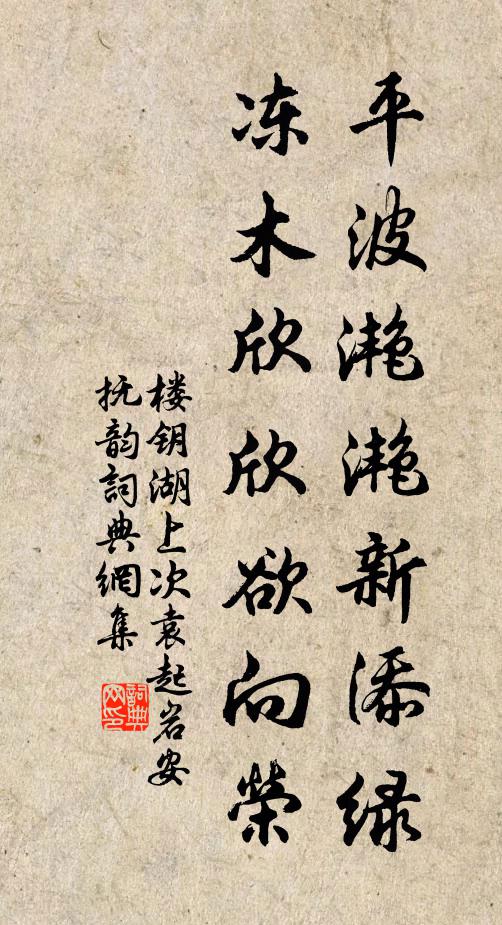 平波滟滟新添绿
冻木欣欣欲向榮
楼钥湖上次袁起岩安
抚韵詞典網集
詞典
网印